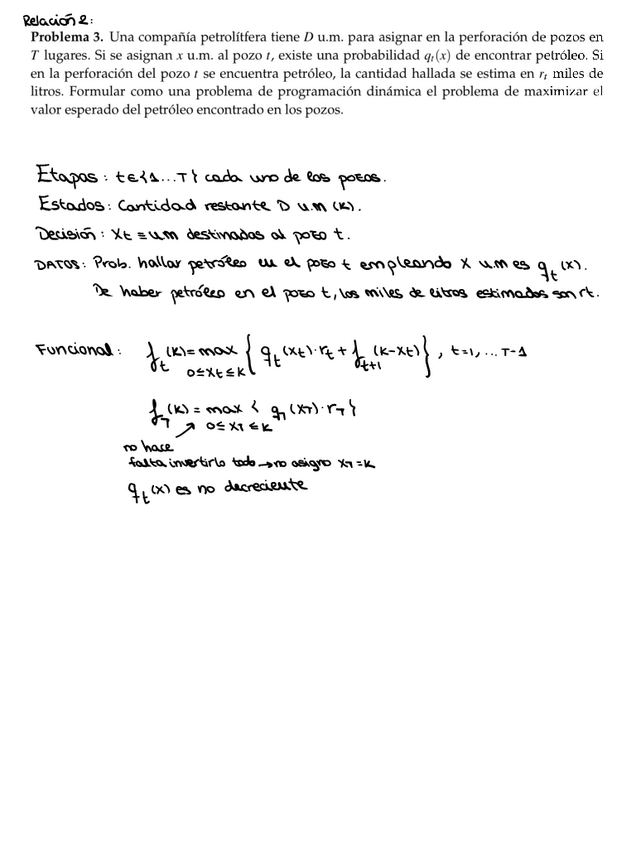 Relación 2:
Problema 3. Una compañía petrolítfera tiene D u.m. para asignar en la perforación de pozos en
T lugares. Si se asignan x u.m. al pozo t, existe una probabilidad qₜ(x) de encontrar petróleo. Si
en la perforación del pozo t se encuentra petróleo, la cantidad hallada se estima en rₜ miles de
litros. Formular como una problema de programación dinámica el problema de maximizar el
valor esperado del petróleo encontrado en los pozos.
Etapas: t∈{1...T} cada uno de los pozos.
Estados: Cantidad restante D u.m (K).
Decisión: Xt = u.m destinadas al pozo t.
DATOS: Prob. hallar petróleo en el pozo t empleando X u.m es qₜ(x).
De haber petróleo en el pozo t, los miles de litros estimados son rt.
Funcional: fₜ(K) = max { qₜ(xt)·rt + fₜ₊₁(K-xt) }, t=1,...T-1
0≤xt≤K
f_T(K) = max { q_T(XT)·rT }
0≤XT≤K
no hace
falta invertirlo todo → no asigno XT=K
qₜ(x) es no decreciente